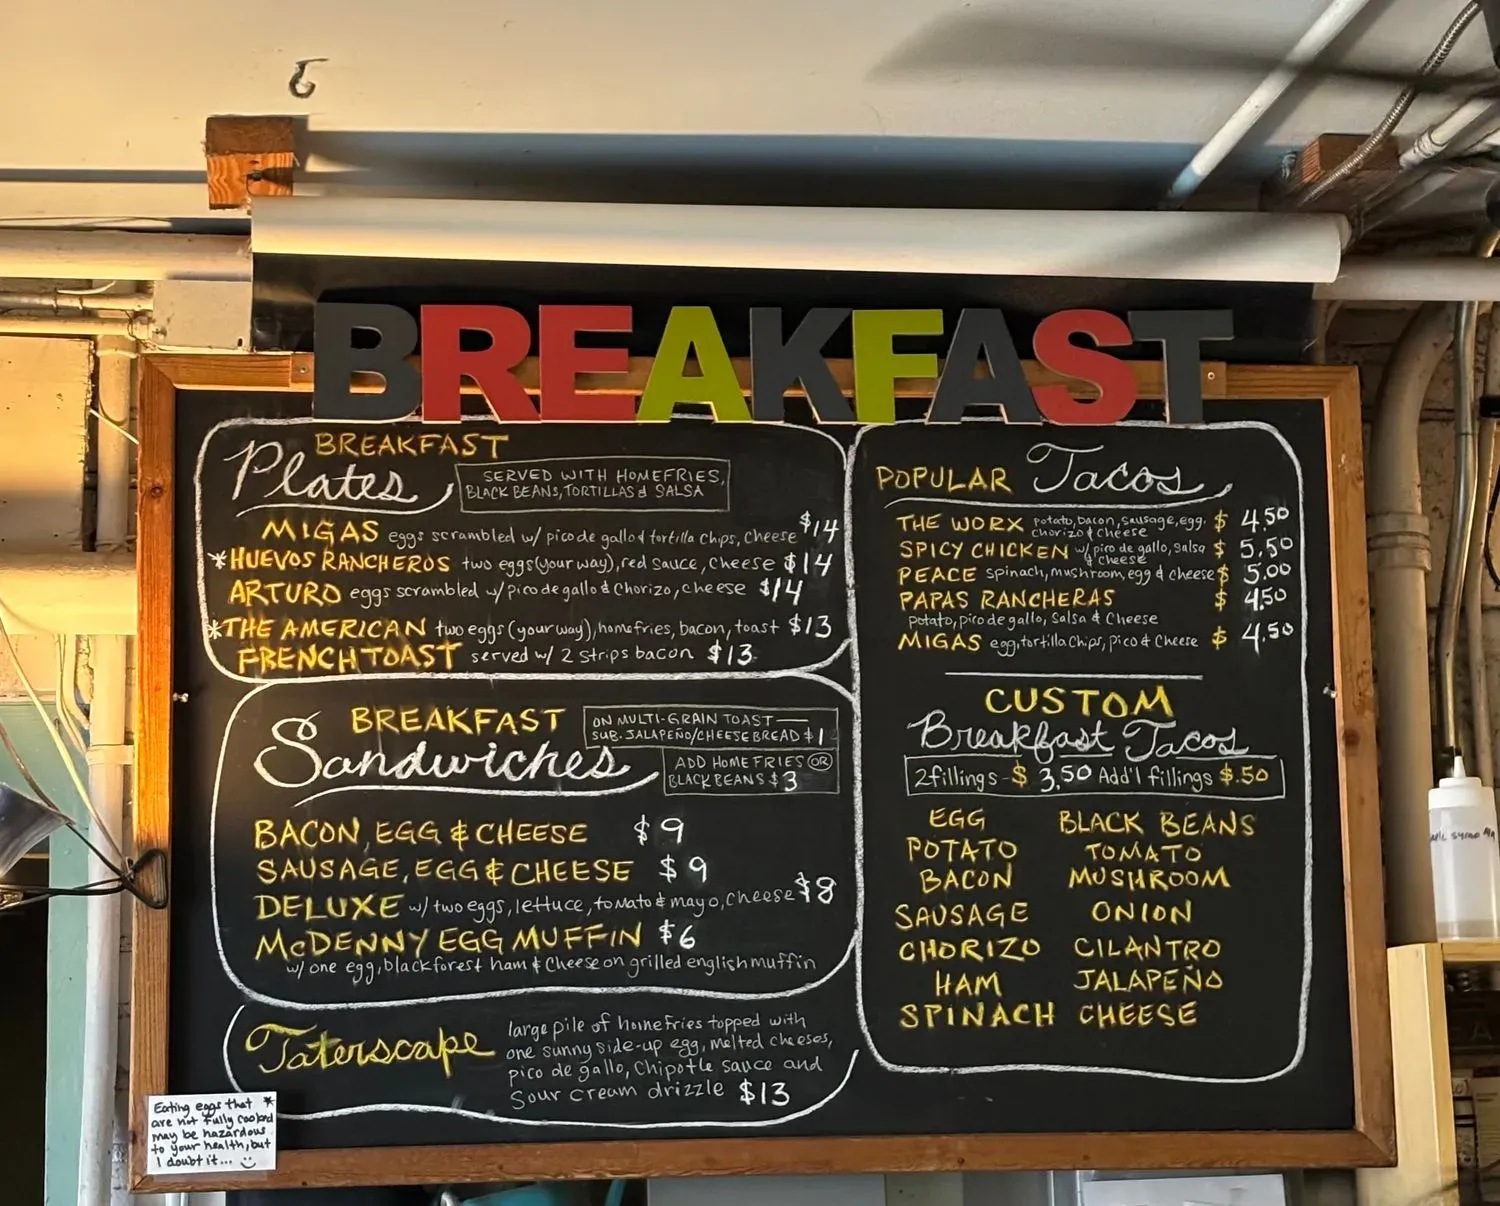 BREAKFAST
BREAKFAST
Plates
SERVED WITH HOMEFRIES,
BLACK BEANS, TORTILLAS & SALSA
MIGAS eggs scrambled w/ pico de gallo & tortilla chips, cheese $14
*HUEVOS RANCHEROS two eggs (your way), red sauce, cheese $14
ARTURO eggs scrambled w/ pico de gallo & Chorizo, cheese $14
*THE AMERICAN two eggs (your way), homefries, bacon, toast $13
FRENCH TOAST served w/ 2 strips bacon $13
BREAKFAST
Sandwiches
ON MULTI-GRAIN TOAST —
SUB. JALAPEÑO/CHEESE BREAD $1
ADD HOMEFRIES OR
BLACK BEANS $3
BACON, EGG & CHEESE $9
SAUSAGE, EGG & CHEESE $9
DELUXE w/ two eggs, lettuce, tomato & mayo, cheese $8
McDENNY EGG MUFFIN $6
w/ one egg, black forest ham & Cheese on grilled english muffin
Taterscape
large pile of homefries topped with
one sunny side-up egg, melted cheeses,
pico de gallo, Chipotle sauce and
sour cream drizzle $13
Eating eggs that *
are not fully cooked
may be hazardous
to your health, but
I doubt it... :)
POPULAR Tacos
THE WORX potato, bacon, sausage, egg, $ 4.50
chorizo & cheese
SPICY CHICKEN w/ pico de gallo, salsa $ 5.50
& cheese
PEACE spinach, mushroom, egg & cheese $ 5.00
PAPAS RANCHERAS $ 4.50
potato, pico de gallo, salsa & Cheese
MIGAS egg, tortilla chips, pico & Cheese $ 4.50
CUSTOM
Breakfast Tacos
2 fillings - $ 3.50 Add'l fillings $.50
EGG BLACK BEANS
POTATO TOMATO
BACON MUSHROOM
SAUSAGE ONION
CHORIZO CILANTRO
HAM JALAPEÑO
SPINACH CHEESE